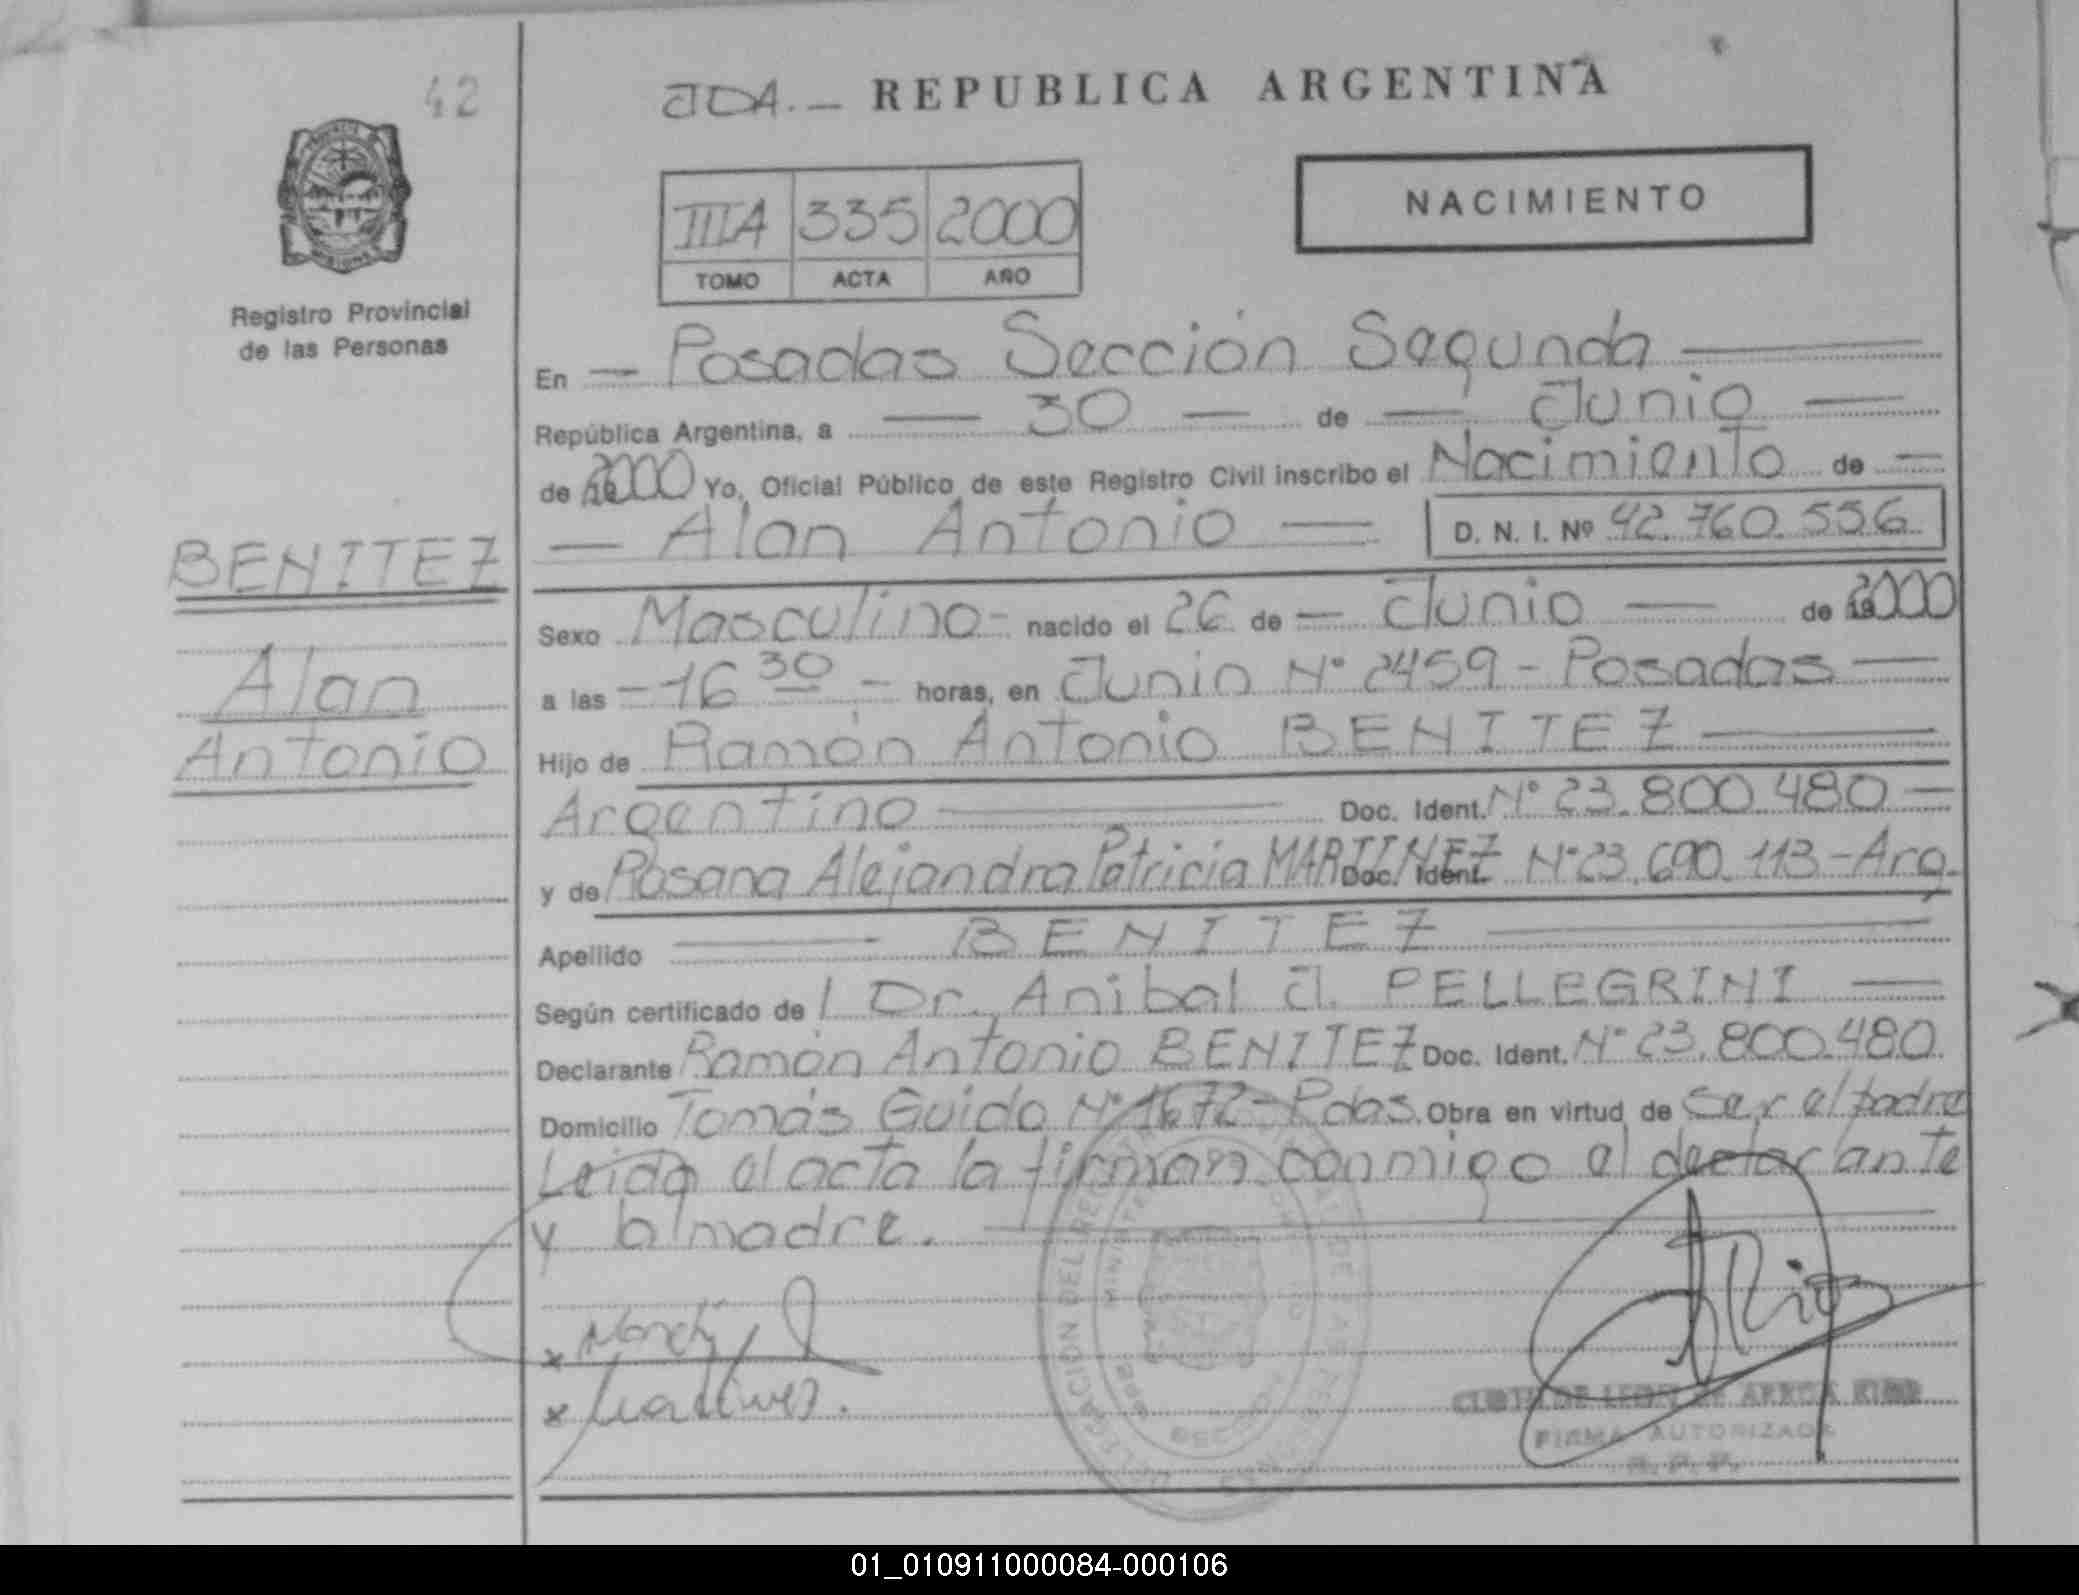 42
JOA. — REPUBLICA ARGENTINA
IIIA 335 2000
TOMO ACTA AÑO
NACIMIENTO
Registro Provincial
de las Personas
En — Posadas Sección Segunda —
República Argentina, a — 30 — de — Junio —
de 2000 Yo, Oficial Público de este Registro Civil inscribo el Nacimiento de —
— Alan Antonio — D. N. I. Nº 42.760.556
BENITEZ
Alan
Antonio
Sexo Masculino - nacido el 26 de — Junio — de 2000
a las - 16 30 - horas, en Junin Nº 2459 - Posadas —
Hijo de Ramón Antonio BENITEZ —
Argentino — Doc. Ident. Nº 23.800.480 —
y de Rosana Alejandra Patricia MARTINEZ Doc. Ident. Nº 23.690.113 - Arg.
Apellido — BENITEZ —
Según certificado de / Dr. Anibal J. PELLEGRINI —
Declarante Ramón Antonio BENITEZ Doc. Ident. Nº 23.800.480
Domicilio Tomás Guido Nº 1672 - Pdas. Obra en virtud de ser el padre
Leida el acta la firman conmigo el declarante
y la madre.
x
x Martinez.
FIRMA AUTORIZADA
R. P. P.
01_010911000084-000106